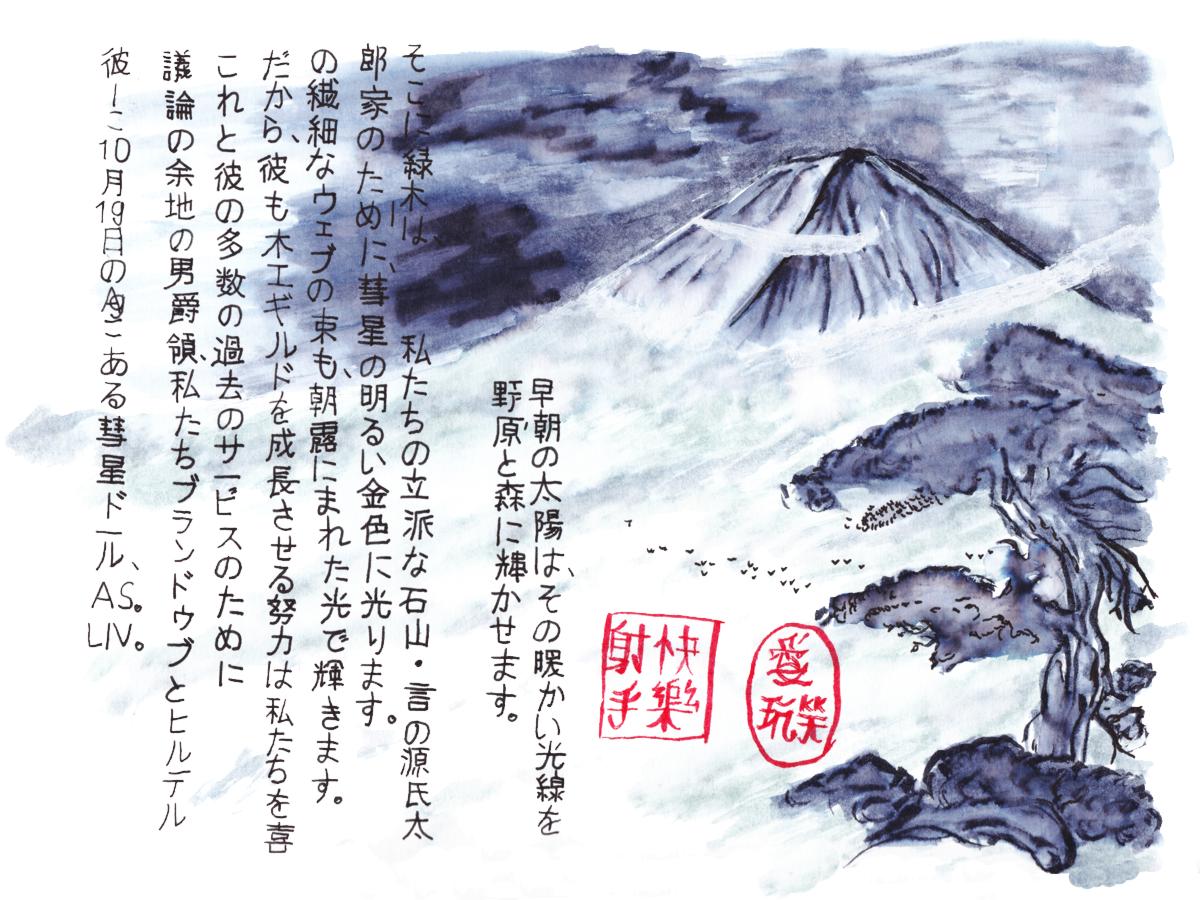 早朝の太陽は、その暖かい光線を
野原と森に輝かせます。
そこに緑木は、 私たちの立派な石山・言の源氏太
郎家のために、彗星の明るい金色に光ります。
の繊細なウェブの束も、朝露にまれた光で輝きます。
だから、彼も木工ギルドを成長させる努力は私たちを喜
これと彼の多数の過去のサービスのために
議論の余地の男爵領、私たちブランドゥブとヒルテル
彼ーこ10月19日の ある彗星ドール、AS。LIV。
快樂
射手
愛
笑
玩